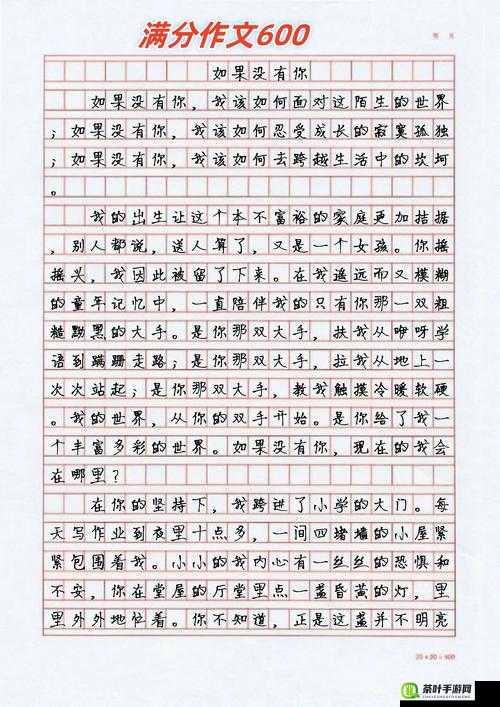 满分作文600
年 月
如果没有你
如果没有你，我该如何面对这陌生的世界
；如果没有你，我该如何忍受成长的寂寞孤独
；如果没有你，我该如何去跨越生活中的坎坷
。
我的出生让这个本不富裕的家庭更加拮据
，别人都说，送人算了，又是一个女孩。你摇
摇头，我因此被留了下来。在我遥远而又模糊
的童年记忆中，一直陪伴我的只有你那一双粗
糙黝黑的大手。是你那双大手，扶我从咿呀学
语到蹒跚走路；是你那双大手，拉我从地上一
次次站起；是你那双大手，教我触摸冷暖软硬
。我的世界，从你的双手开始。是你给了我一
个丰富多彩的世界。如果没有你，现在的我会
在哪里？
在你的坚持下，我跨进了小学的大门。每
天写作业到夜里十点多，一间四堵墙的小屋紧
紧包围着我。小小的我内心有一丝丝的恐惧和
不安，你在堂屋的厅堂里点一盏昏黄的灯，里
里外外地忙着。你不知道，正是这盏并不明亮
20×20=400
茶叶手游网